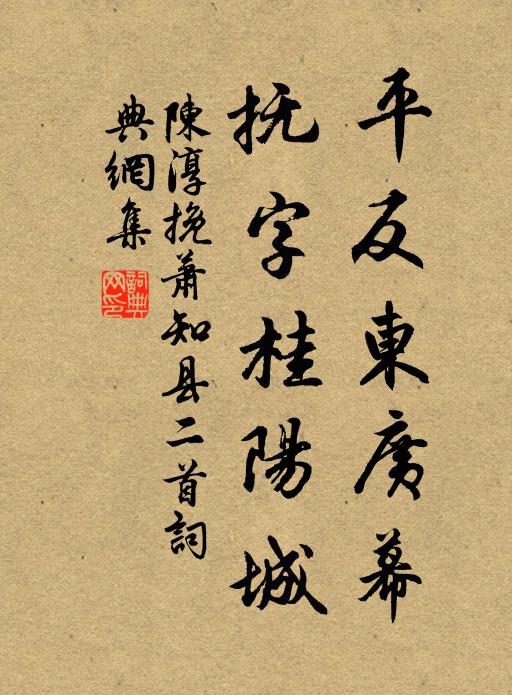 平反東廣幕
抚字桂陽城
陳淳挽蕭知县二首詞
典網集
詞典
网印